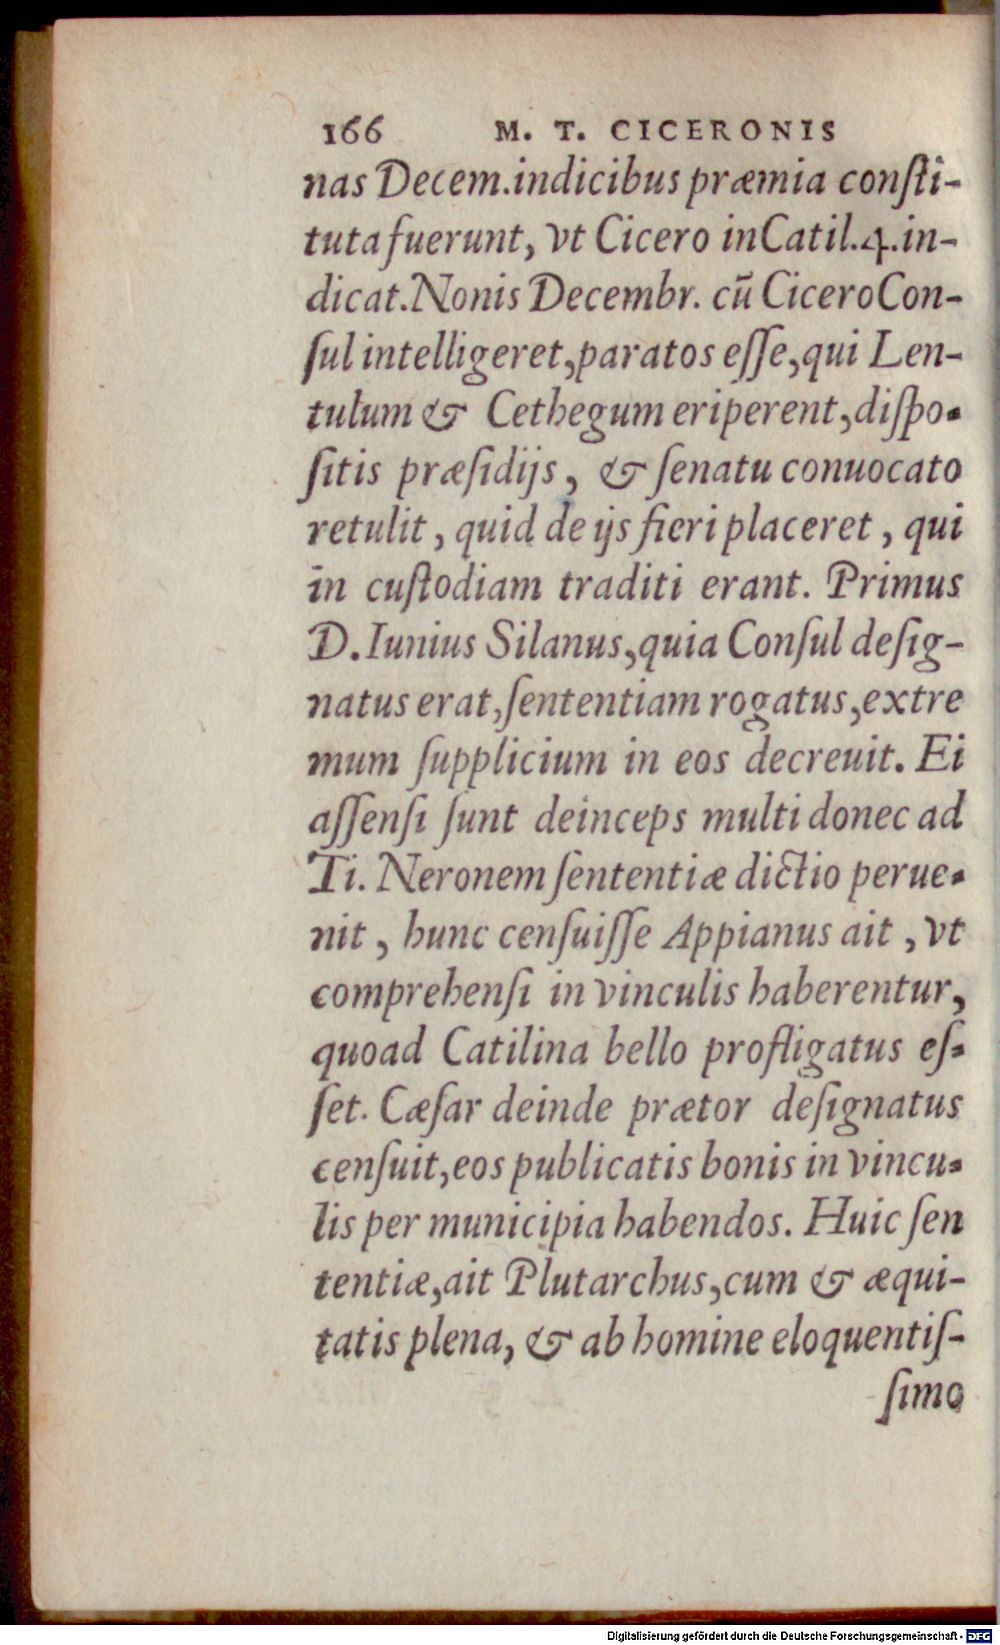 166 M. T. CICERONIS
nas Decem.indicibus præmia conſti-
tuta fuerunt, vt Cicero in Catil.4.in-
dicat.Nonis Decembr. cū Cicero Con-
ſul intelligeret,paratos eſſe,qui Len-
tulum & Cethegum eriperent,diſpo-
ſitis præſidijs, & ſenatu conuocato
retulit, quid de ijs fieri placeret, qui
in cuſtodiam traditi erant. Primus
D.Iunius Silanus,quia Conſul deſig-
natus erat,ſententiam rogatus,extre
mum ſupplicium in eos decreuit. Ei
aſſenſi ſunt deinceps multi donec ad
Ti. Neronem ſententiæ dictio perue-
nit, hunc cenſuiſſe Appianus ait, vt
comprehenſi in vinculis haberentur,
quoad Catilina bello profligatus eſ-
ſet. Cæſar deinde prætor deſignatus
cenſuit,eos publicatis bonis in vincu-
lis per municipia habendos. Huic ſen
tentiæ,ait Plutarchus,cum & æqui-
tatis plena, & ab homine eloquentiſ-
ſimo
Digitalisierung gefördert durch die Deutsche Forschungsgemeinschaft - DFG